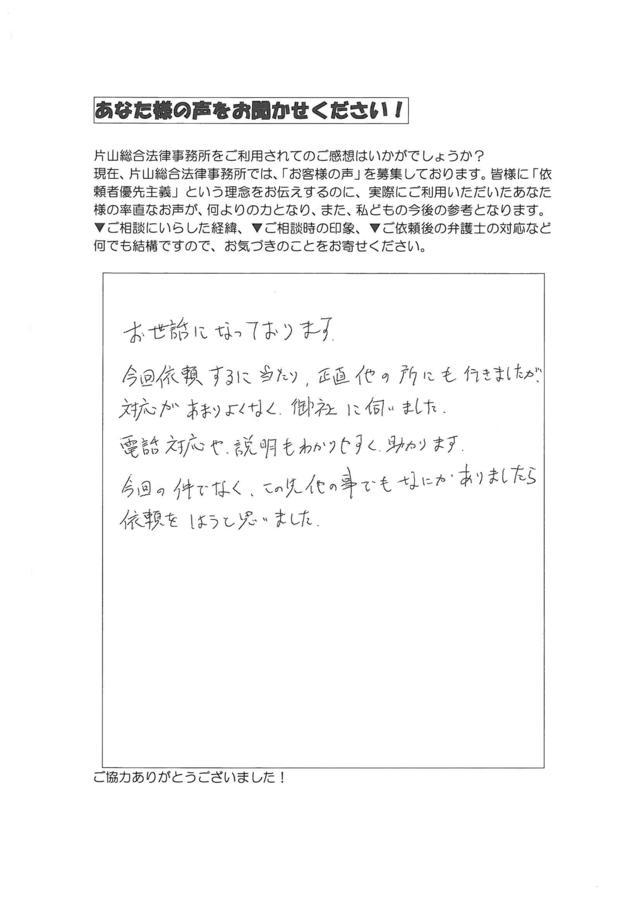 あなた様の声をお聞かせください！
片山総合法律事務所をご利用されてのご感想はいかがでしょうか？
現在、片山総合法律事務所では、「お客様の声」を募集しております。皆様に「依
頼者優先主義」という理念をお伝えするのに、実際にご利用いただいたあなた
様の率直なお声が、何よりの力となり、また、私どもの今後の参考となります。
▼ご相談にいらした経緯、▼ご相談時の印象、▼ご依頼後の弁護士の対応など
何でも結構ですので、お気づきのことをお寄せください。
お世話になっております.
今回依頼するに当たり, 正直他の所にも行きましたが、
対応があまりよくなく. 御社に伺いました.
電話対応や、説明もわかりやすく、助かります.
今回の件でなく、この先他の事でもなにかありましたら
依頼をしようと思いました.
ご協力ありがとうございました！